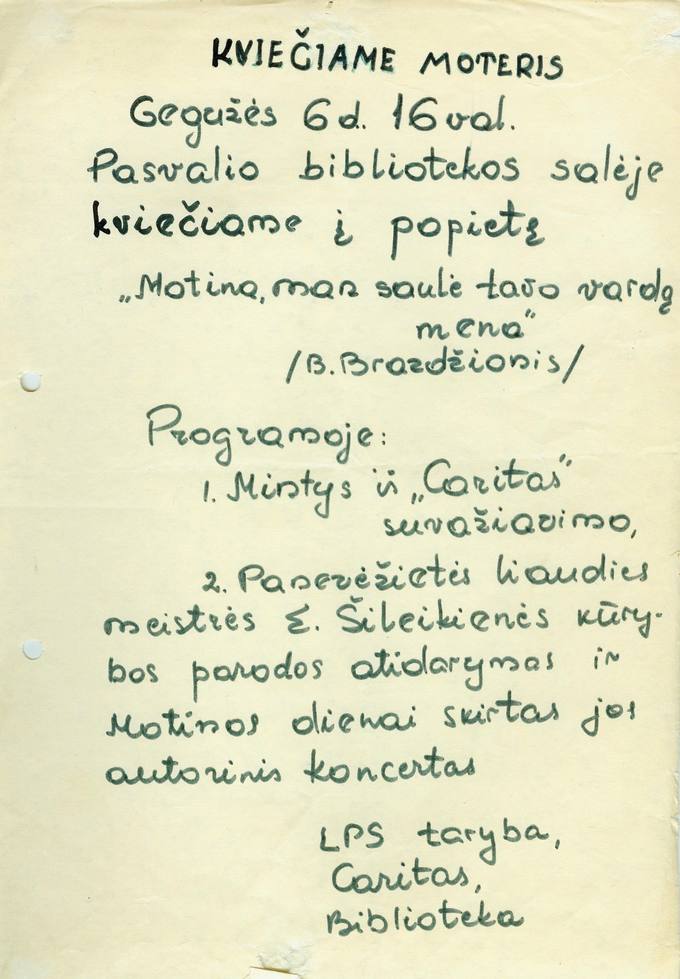 KVIEČIAME MOTERIS
Gegužės 6 d. 16 val.
Pasvalio bibliotekos salėje
kviečiame į popietę
„Motina, man saulė tavo vardą
mena"
/B. Brazdžionis/
Programoje:
1. Mintys iš „Caritas"
suvažiavimo,
2. Panevėžietės liaudies
meistrės E. Šileikienės kūry-
bos parodos atidarymas ir
Motinos dienai skirtas jos
autorinis koncertas
LPS taryba,
Caritas,
Biblioteka